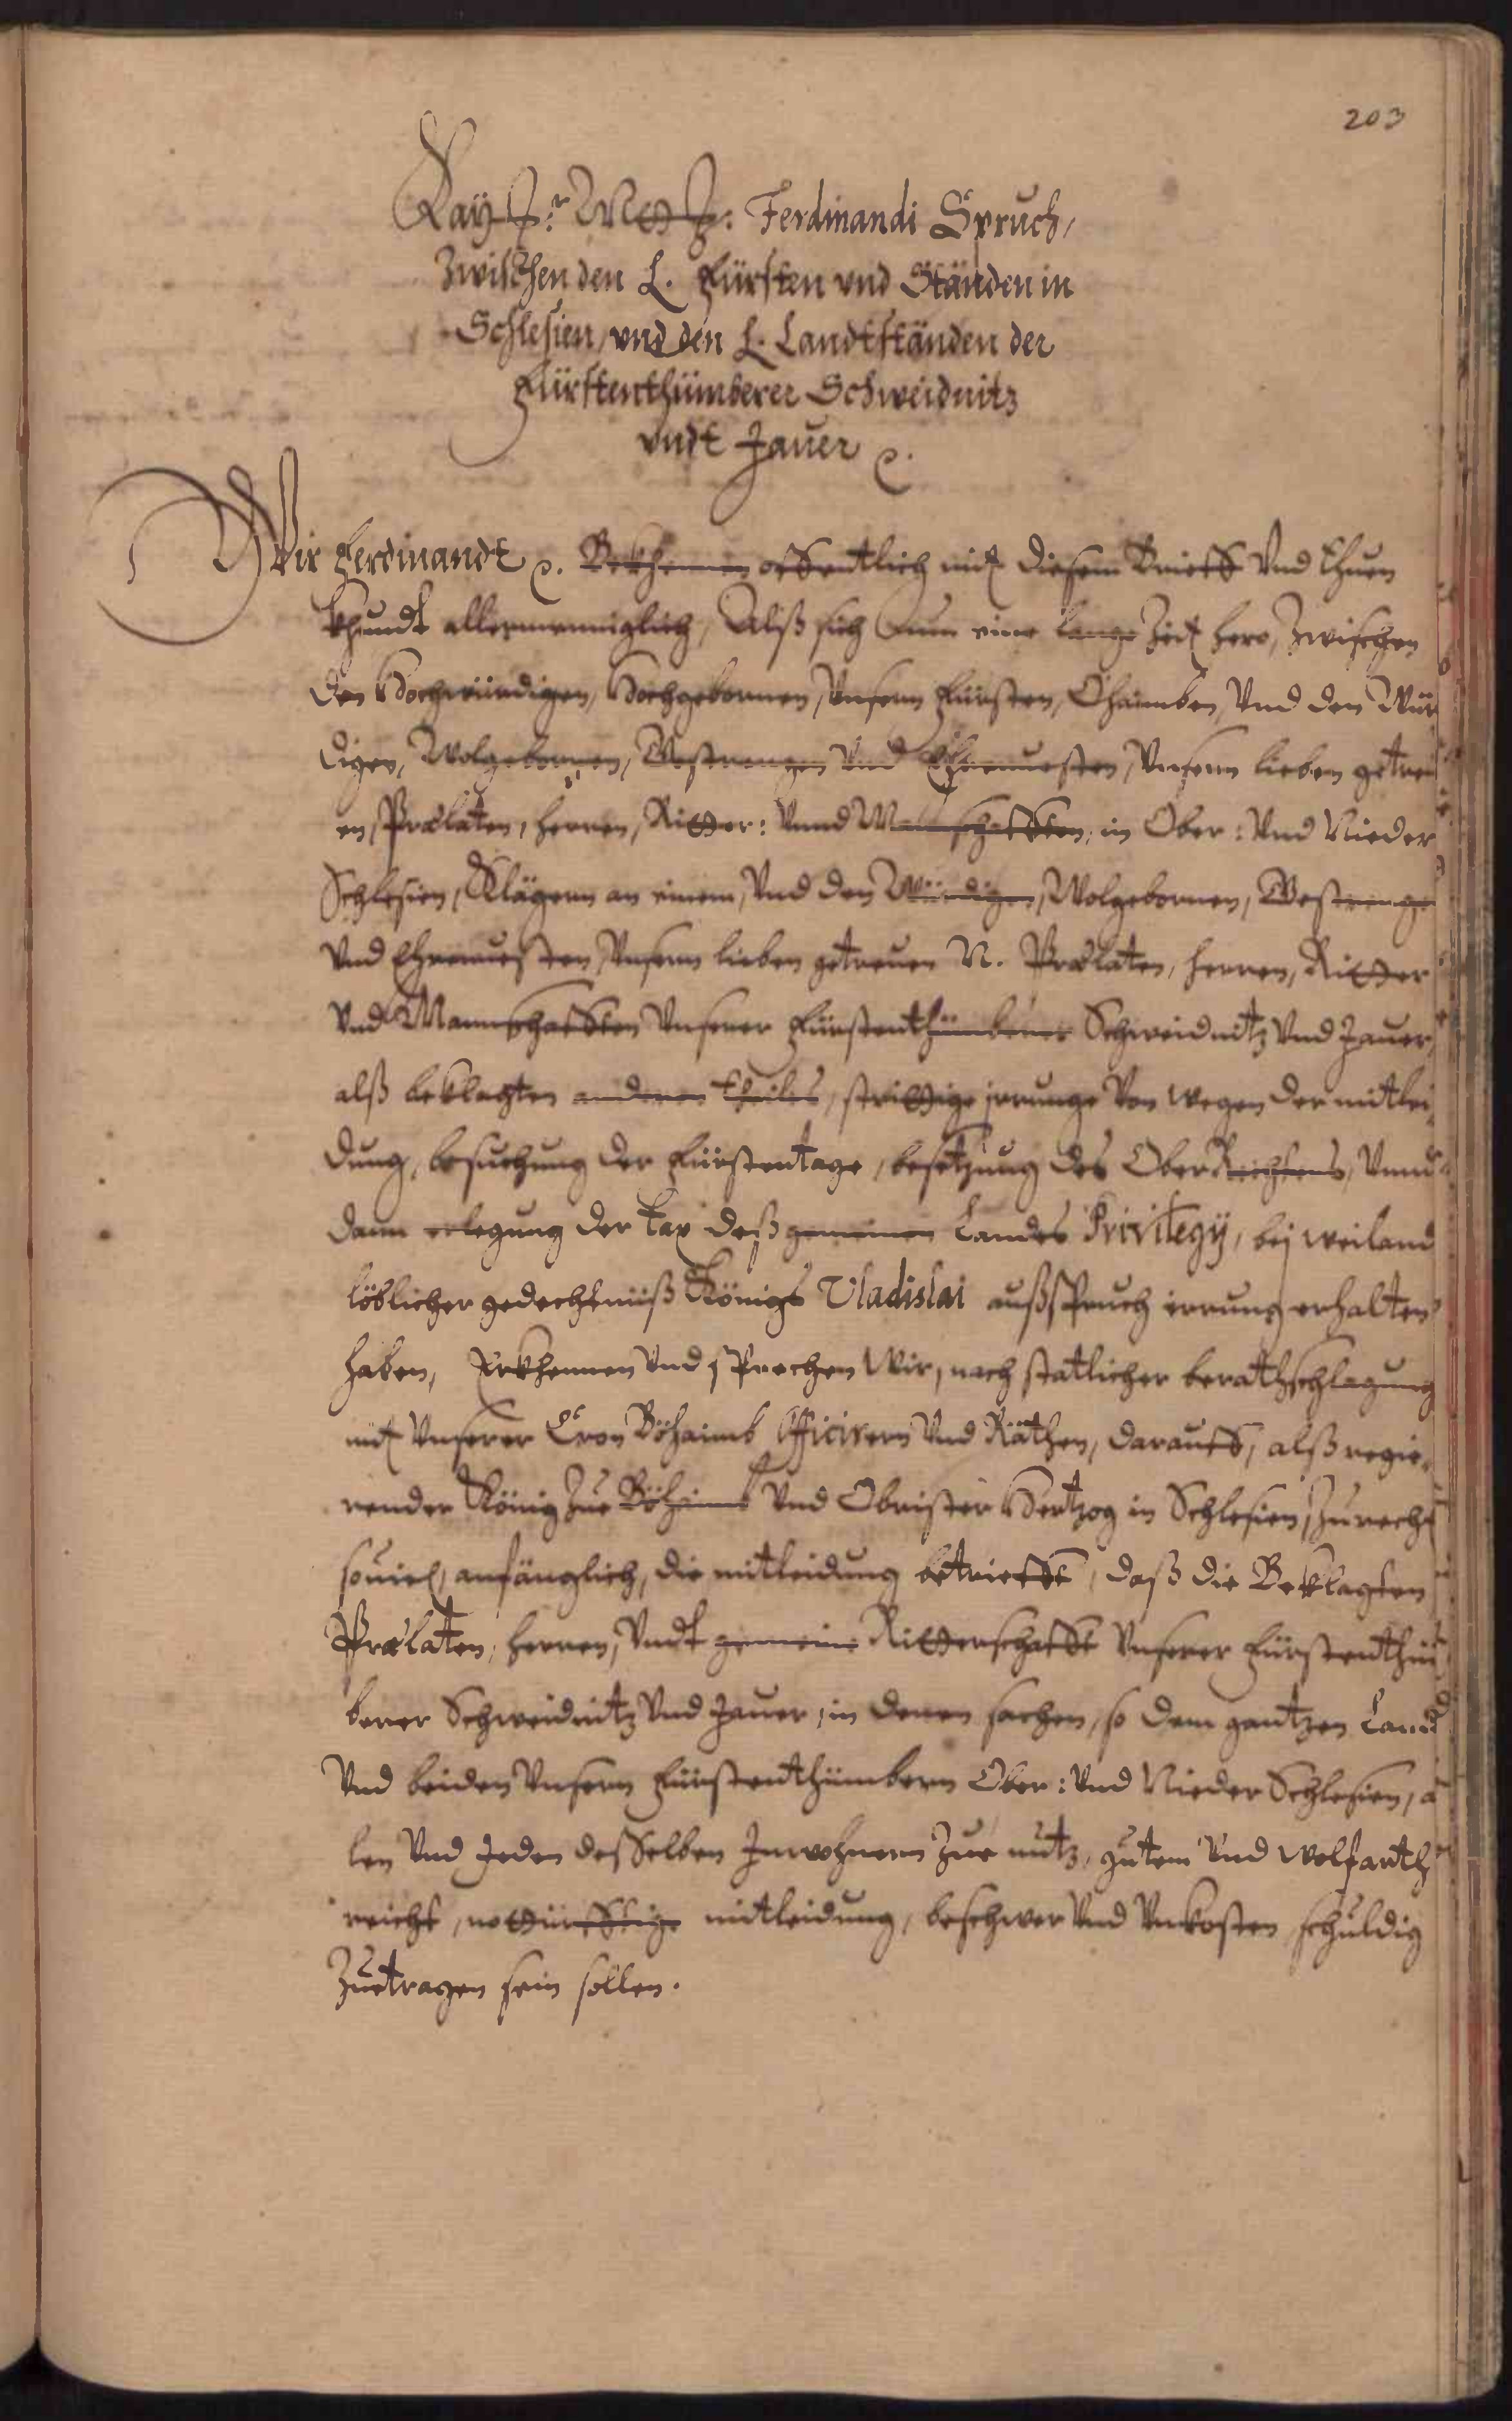 203
Kay: r Mtt: Ferdinandi Spruch,
Zwischen den L. Fürsten vnd Ständen in
Schlesien, vnd den L. Landtständen der
Fürstenthümberer Schweidnitz
vndt Jauer ꝛ.
Wir Ferdinandt ꝛ. Bekhennen offentlich mit diesem Brieff Vnd thuen
khundt allermenniglich, Alß sich Nun eine lange Zeit hero, Zwischen
den Hochwürdigen, Hochgebornen, Vnsern Fürsten, Ohaimben, Vnd den Wür
digen, Wolgebornen, Gestrengen Vnd Ehrnuesten, Vnsern lieben getreu
en, Prælaten, Herren, Ritter: Vnnd Manschafften, in Ober: Vnd Nieder
Schlesien, Klägern an einem, Vnd den Würdigen, Wolgebornen, Gestrenge
Vnd Ehrnuesten, Vnsern lieben getreuen N. Prælaten, Herren, Ritter
Vnd Mannschafften Vnserer Fürstenthümberer Schweidnitz Vnd Jauer,
alß beklagten anderen theiles, strittige irrunge Von wegen der mitlei
dung, besuchung der Fürstentage, besetzung des OberRechtens, Vnnd
dann erlegung der tax deß gemeinen Landes Privilegÿ, beÿ weiland
löblicher gedechtnüß Königs Vladislai außspruch irrung erhalten
haben, Erkhennen Vnd sprechen Wir, nach statlicher berathschlagung
mit Vnserer Cron Böhaimb Officirern Vnd Räthen, darauff, alß regie,
render König Zue Böhaimb Vnd Obrister Hertzog in Schlesien, Zu recht
souiel, anfänglich, die mitleidung betriefft, daß die Beklagten
Prælaten, Herren, Vndt gemeine Ritterschafft Vnserer Fürstenthüm
berer Schweidnitz Vnd Jauer, in denen sachen, so dem gantzen Land
Vnd beiden Vnsern Fürstenthümbern Ober: Vnd Nieder Schlesien, a
len Vnd Jeden desselben Inwohnern Zue nutz, gutem Vnd wolfarth
reicht, notdürfftige mitleidung, beschwer Vnd Vnkosten schuldig
Zuetragen sein sollen.